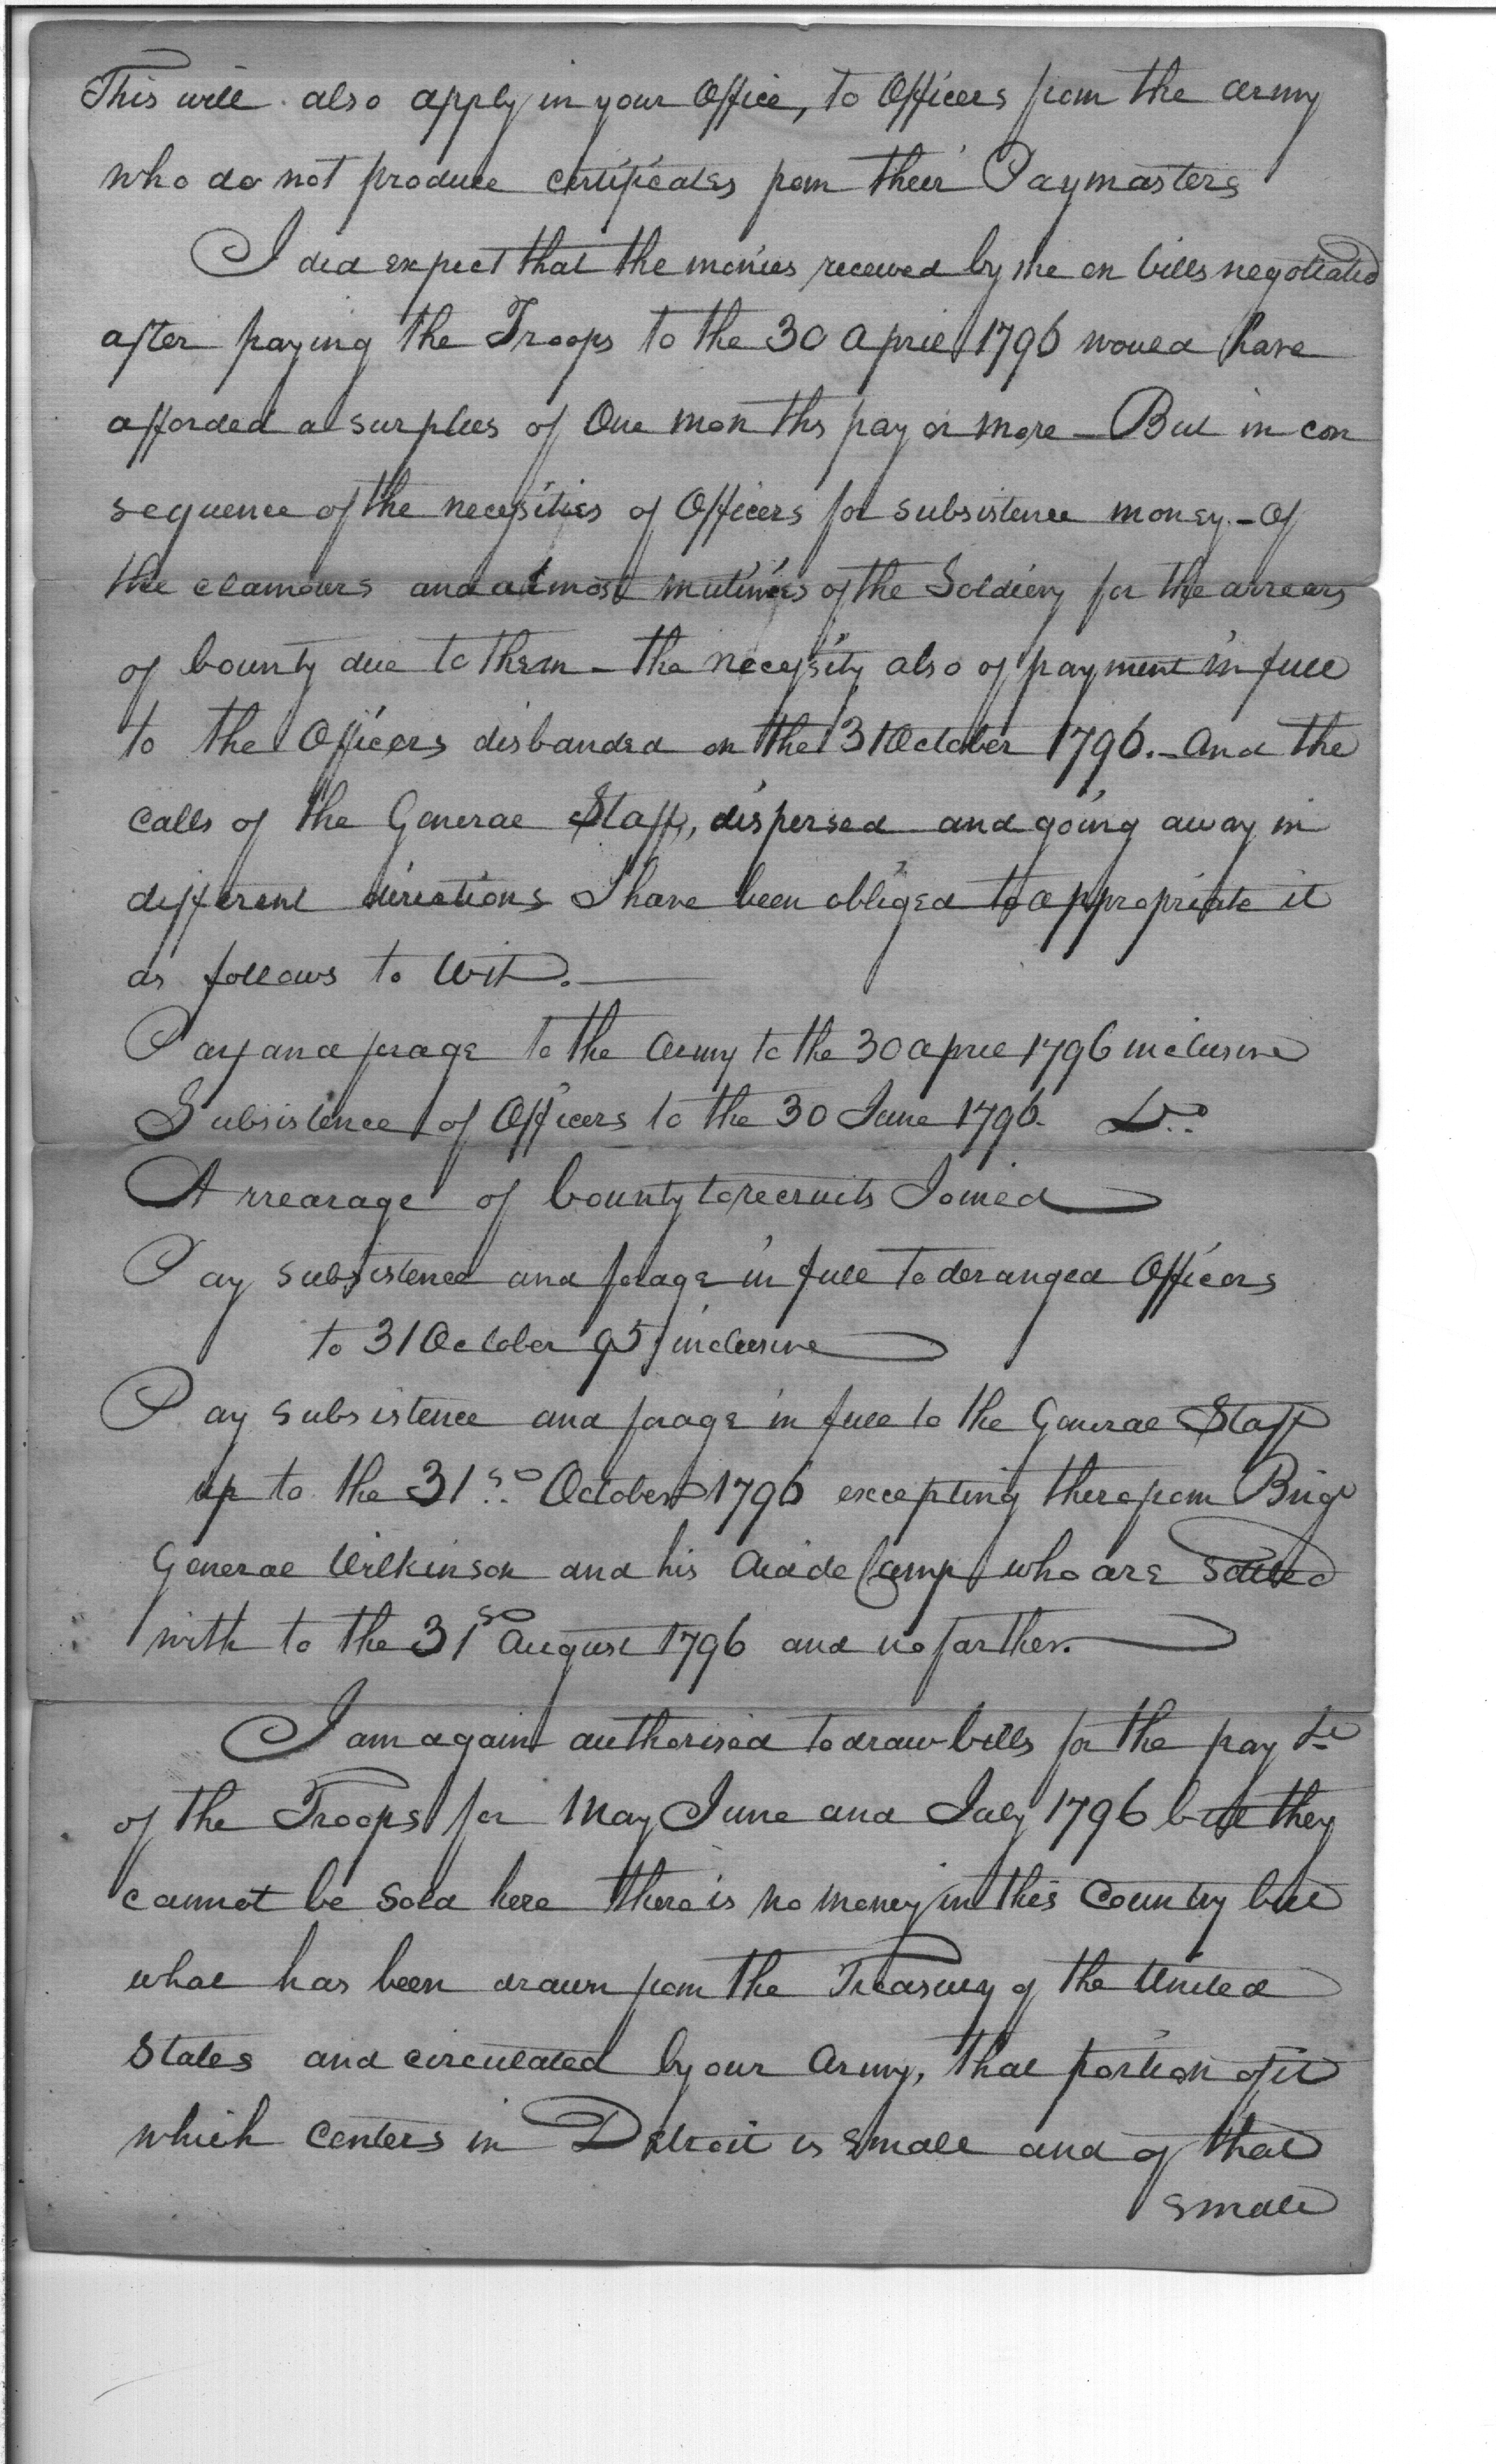 This will also apply in your Office, to Officers from the army
who do not produce certificates from their Paymasters
I did expect that the monies received by me on bills negotiated
after paying the Troops to the 30 April 1796 would have
afforded a surplus of One months pay or more - But in con
sequence of the necessities of Officers for subsistence money. - Of
the clamours and almost mutinies of the Soldiery for the arrears
of bounty due to them - the necessity also of payment in full
to the Officers disbanded on the 31 October 1796. - And the
calls of the General Staff, dispersed and going away in
different directions I have been obliged to appropriate it
as follows to Wit. —
Pay and forage to the Army to the 30 april 1796 inclusive
Subsistence of Officers to the 30 June 1796. Do
Arrearage of bounty to recruits Joined
Pay subsistence and forage in full to deranged Officers
to 31 October 95 inclusive
Pay subsistence and forage in full to the General Staff
up to the 31st October 1796 excepting therefrom Brigr
General Wilkinson and his Aid de Camp who are settled
with to the 31st August 1796 and no farther.
I am again authorised to draw bills for the pay &c
of the Troops for May June and July 1796 but they
cannot be sold here there is no money in this Country but
what has been drawn from the Treasury of the United
States and circulated by our Army, that portion of it
which centers in Detroit is small and of that
small